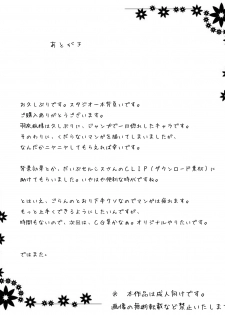 あとがき
お久しぶりです。スタジオ一本背負いです。
ご購入ありがとうございます。
は久しぶりに、ジャンプで一目惚れしたキャラです。
そのわりに、くだらないマンガを描いてしまいましたが、
なんだかニヤニヤしてもらえれば幸いです。
背景効果とか、だいぶセルシスさんのCLIP(ダウンロード素材)に
助けてもらいました。いやはや便利な時代ですね。
とはいえ、ごらんのとおり下手クソなのでマンガは疲れます。
もっと上手くできるようにしたいし、
時間もないので、次回は、CG集かなぁ。オリジナルやりたいです。
ではまた。
※ 本作品は成人向けです。
画像の無断転載など禁止いたしま